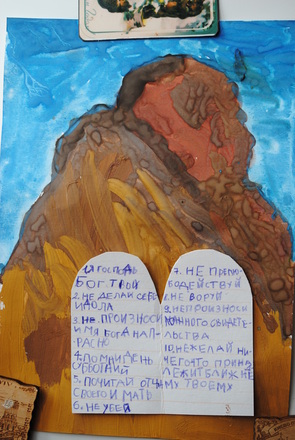 1. Я ГОСПОДЬ
БОГ ТВОЙ
2. НЕ ДЕЛАЙ СЕБЕ
ИДОЛА
3. НЕ ПРОИЗНОСИ
ИМЯ БОГА НАП-
РАСНО
4. ПОМНИ ДЕНЬ
СУББОТНИЙ
5. ПОЧИТАЙ ОТЦА
СВОЕГО И МАТЬ
6. НЕ УБЕЙ
7. НЕ ПРЕЛЮ-
БОДЕЙСТВУЙ
8. НЕ ВОРУЙ
9. НЕ ПРОИЗНОСИ
ЛОЖНОГО СВИДЕТЕ-
ЛЬСТВА
10. НЕ ЖЕЛАЙ НИ-
ЧЕГО ЧТО ПРИНА
ДЛЕЖИТ БЛИЖНЕ
МУ ТВОЕМУ